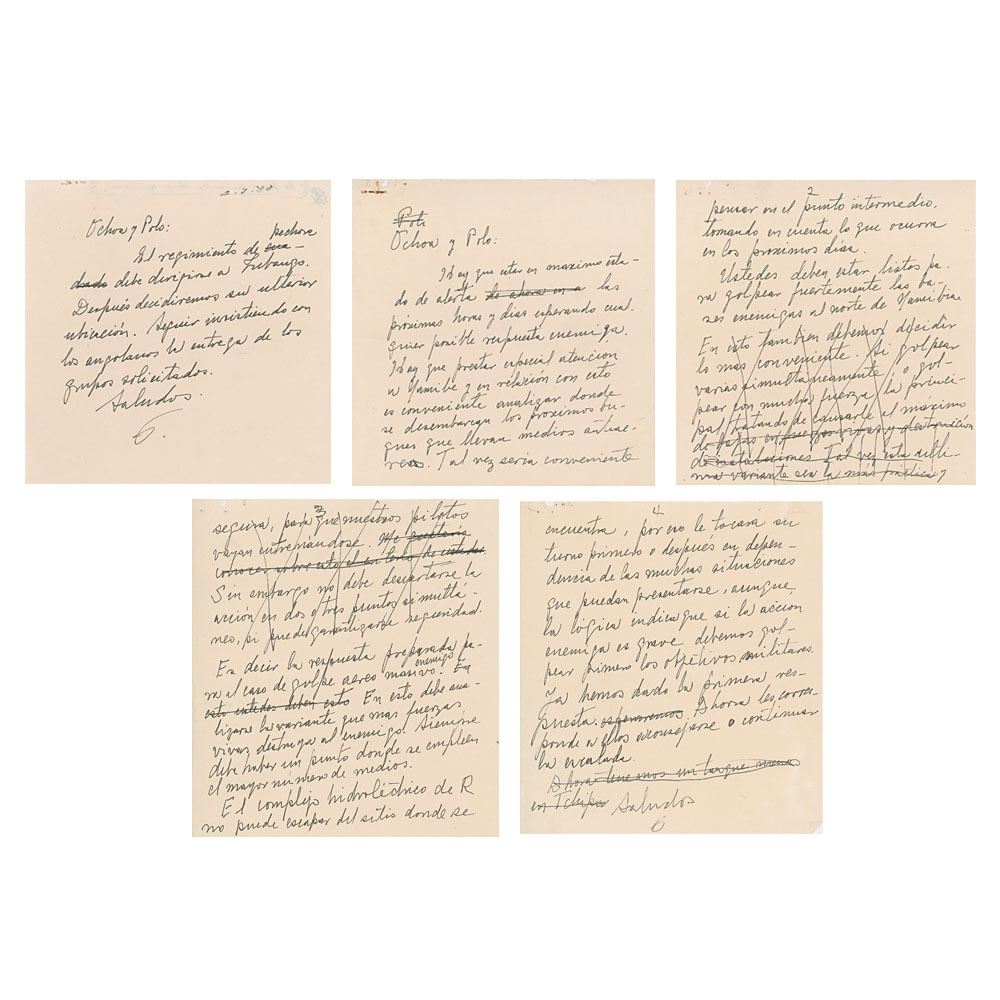 Ochoa y Polo:
El regimiento de pechora
debe dirigirse a Lubango.
Después decidiremos su ulterior
ubicación. Seguir insistiendo con
los angolanos la entrega de los
grupos solicitados.
Saludos.
Polo
Ochoa y Polo:
Hay que estar en maximo esta-
do de alerta de ahora en a las
próximas horas y dias esperando cual
quier posible respuesta enemiga.
Hay que prestar especial atencion
a Namibe y en relación con esto
es conveniente analizar donde
se desembarcan los proximos bu-
ques que llevan medios
Tal vez seria conveniente
2
pensar en el punto intermedio,
tomando en cuenta lo que ocurra
en los proximos dias.
Ustedes deben estar listos pa-
ra golpear fuertemente las ba-
ses enemigas al norte de Namibia
En esto tambien debemos decidir
lo mas conveniente. Si golpear
varias simultáneamente, o gol-
pear con mucha fuerza la princi-
pal tratando de causarle el máximo
de bajas en fuerzas vivas y destrucción
de instalaciones Tal vez esta ulti-
ma variante sea la más práctica y
3
segura, para que nuestros pilotos
vayan entrenándose. Me gustaria
conocer sobre esto el criterio de ustedes
Sin embargo no debe descartarse la
acción en dos o tres puntos simultá-
neos, si puede garantizarse seguridad.
Es decir la respuesta preparada pa-
ra el caso de golpe aereo masivo enemigo. En
esto ustedes deben esto En esto debe ana-
lizarse la variante que mas fuerzas
vivas destruya al enemigo. Siempre
debe haber un punto donde se empleen
el mayor número de medios.
El complejo hidroléctrico de R
no puede escapar del sitio donde se
4
encuentra, por eso le tocará su
turno primero o después en depen-
dencia de las muchas situaciones
que puedan presentarse, aunque,
la lógica indica que si la accion
enemiga es grave debemos gol-
pear primero los objetivos militares.
Ya hemos dado la primera res-
puesta. esperaremos. Ahora les corres-
ponde a ellos aconsejarse o continuar
la escalada.
Ahora tenemos un tanque nuevo
en Tchipa Saludos